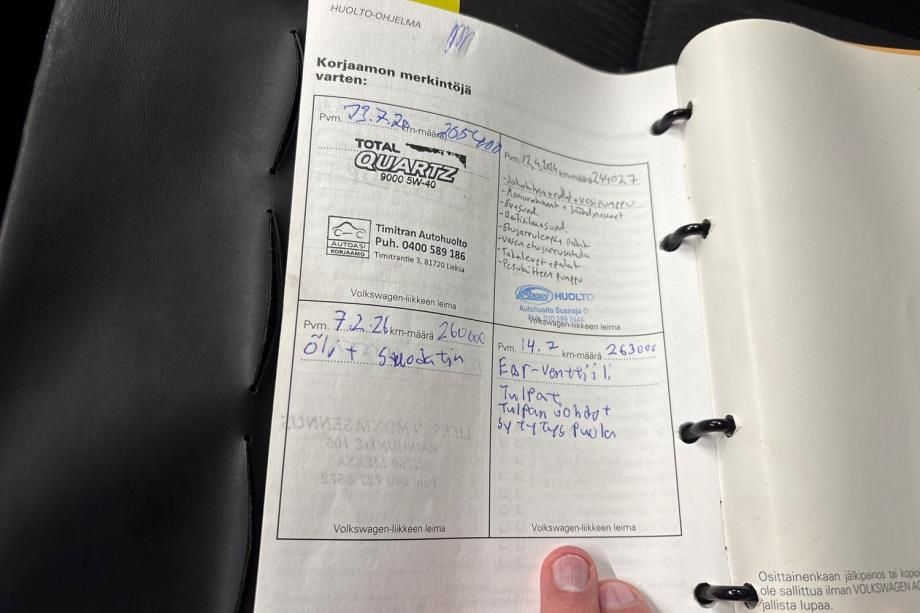 HUOLTO-OHJELMA
Korjaamon merkintöjä
varten:
Pvm. 23.7.20 km-määrä 205400
TOTAL
QUARTZ
9000 5W-40
AUTOASI
KORJAAMO
Timitran Autohuolto
Puh. 0400 589 186
Timitrantie 3, 81720 Lieksa
Volkswagen-liikkeen leima
Pvm. 12.4.2024 km-määrä 244027
-Jakohihna+rullat+vesipumppu
-Öv+suod.
-Raitisilmasuod.
-Etujarrulevyt+palat
-Vasen etujarrusatula
-Takalevyt+palat
-Pesulaitteen pumppu
HUOLTO
Autohuolto Susiraja O
Volkswagen-liikkeen leima
Pvm. 7.2.26 km-määrä 260000
Öljy+ suodatin
Volkswagen-liikkeen leima
Pvm. 14.2 km-määrä 263000
Egr-venttiili
Tulpat
Tulpan johdot
Sytytys puola
Volkswagen-liikkeen leima
Osittainenkaan jälkipainos tai kopio
ole sallittua ilman VOLKSWAGEN AG
jallista lupaa.